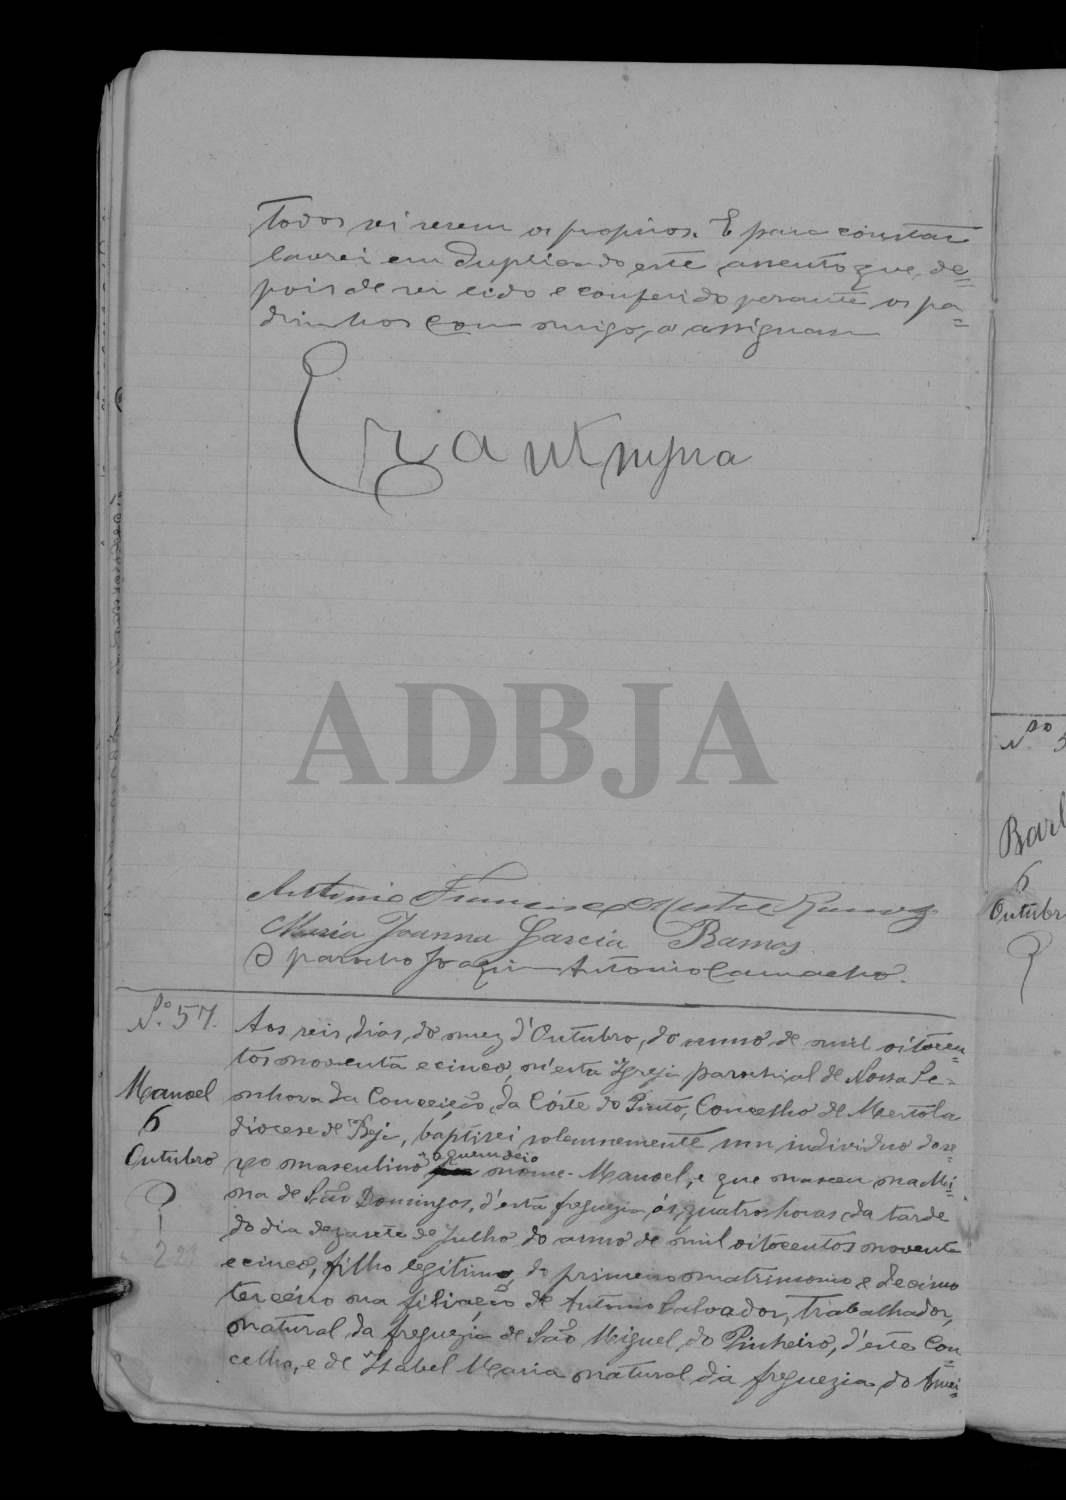 Todos sei serem os proprios. E para constar
lavrei em duplicado este assento que, de=
pois de ser lido e conferido perante os pa=
drinhos com migo, o assignam
Era ut supra
ADBJA
Antonio Francisco Mestre Ramos
Maria Joanna Garcia Ramos
O parocho Joaquim Antonio Camacho.
N.º 57.
Manoel
6
Outubro
Aos seis, dias, do mez d'Outubro, do anno de mil oitocen=
tos noventa e cinco, n'esta Igreja parochial de Nossa Se=
nhora da Conceição, da Côrte do Pinto, Concelho de Mertola
diocese de Beja, baptisei solemnemente um individuo do se=
xo masculino a quem dei o nome - Manoel, e que nasceu na Mi=
na de São Domingos, d'esta freguezia ás, quatro horas, da tarde
do dia dezasete de Julho do anno de mil oitocentos noventa
e cinco, filho legitimo, do primeiro matrimonio e decimo
terceiro na filiação de Antonio Salvador, Trabalhador,
natural da freguezia de São Miguel do Pinheiro, d'este Con=
celho, e de Isabel Maria natural da freguezia do Amei=
N.º 5
Barl
6
Outubr